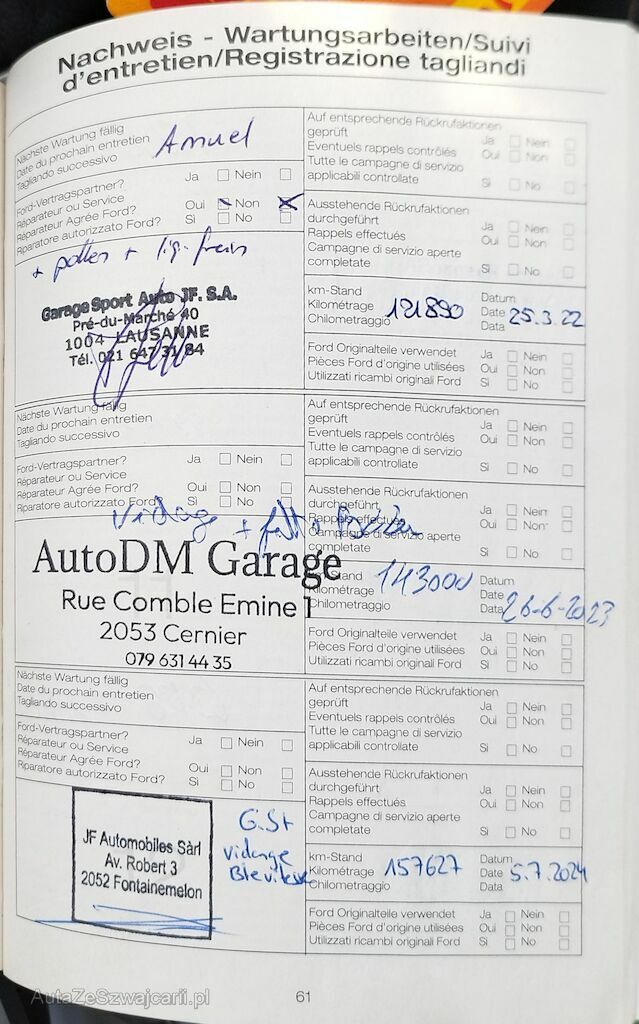 Nachweis - Wartungsarbeiten/Suivi
d'entretien/Registrazione tagliandi
Nächste Wartung fällig
Date du prochain entretien
Tagliando successivo
Annuel
Ford-Vertragspartner? Ja Nein
Réparateur ou Service
Réparateur Agrée Ford? Oui Non
Riparatore autorizzato Ford? Sì No
+ pollen + liq. frein
Garage Sport Auto JF. S.A.
Pré-du-Marché 40
1004 LAUSANNE
Tél. 021 647 31 84
Auf entsprechende Rückrufaktionen
geprüft Ja Nein
Eventuels rappels contrôlés Oui Non
Tutte le campagne di servizio
applicabili controllate Sì No
Ausstehende Rückrufaktionen
durchgeführt Ja Nein
Rappels effectués Oui Non
Campagne di servizio aperte
completate Sì No
km-Stand Datum
Kilométrage 121890 Date 25.3.22
Chilometraggio Data
Ford Originalteile verwendet Ja Nein
Pièces Ford d'origine utilisées Oui Non
Utilizzati ricambi originali Ford Sì No
Nächste Wartung fällig
Date du prochain entretien
Tagliando successivo
Ford-Vertragspartner? Ja Nein
Réparateur ou Service
Réparateur Agrée Ford? Oui Non
Riparatore autorizzato Ford? Sì No
Vidange +
AutoDM Garage
Rue Comble Emine 1
2053 Cernier
079 631 44 35
Auf entsprechende Rückrufaktionen
geprüft Ja Nein
Eventuels rappels contrôlés Oui Non
Tutte le campagne di servizio
applicabili controllate Sì No
Ausstehende Rückrufaktionen
durchgeführt Ja Nein
Rappels effectués Oui Non
Campagne di servizio aperte
completate Sì No
km-Stand Datum
Kilométrage 143000 Date
Chilometraggio Data 26-6-2023
Ford Originalteile verwendet Ja Nein
Pièces Ford d'origine utilisées Oui Non
Utilizzati ricambi originali Ford Sì No
Nächste Wartung fällig
Date du prochain entretien
Tagliando successivo
Ford-Vertragspartner? Ja Nein
Réparateur ou Service
Réparateur Agrée Ford? Oui Non
Riparatore autorizzato Ford? Sì No
JF Automobiles Sàrl
Av. Robert 3
2052 Fontainemelon
G.St
Vidange
Auf entsprechende Rückrufaktionen
geprüft Ja Nein
Eventuels rappels contrôlés Oui Non
Tutte le campagne di servizio
applicabili controllate Sì No
Ausstehende Rückrufaktionen
durchgeführt Ja Nein
Rappels effectués Oui Non
Campagne di servizio aperte
completate Sì No
km-Stand Datum
Kilométrage 157627 Date 5.7.2024
Chilometraggio Data
Ford Originalteile verwendet Ja Nein
Pièces Ford d'origine utilisées Oui Non
Utilizzati ricambi originali Ford Sì No
61
AutaZeSzwajcarii.pl